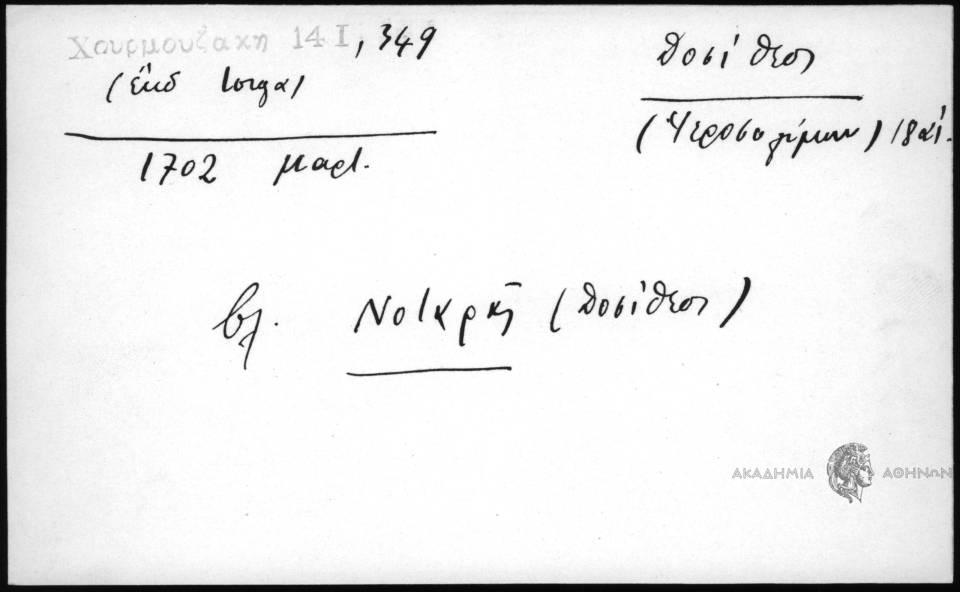 Χουρμουζάκη 14 I, 349
(ἔκδ Iorga)
1702 Μαρτ.
Δοσίθεος
(Ἱεροσολύμων) 18 αἰ.
βλ. Νοταρᾶς (Δοσίθεος)
ΑΚΑΔΗΜΙΑ ΑΘΗΝΩΝ